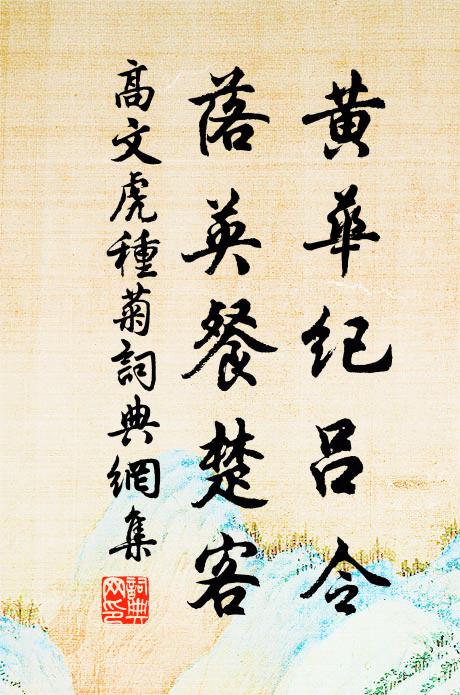 黄華紀呂令
落英餐楚客
高文虎種菊詞典網集
詞典網印